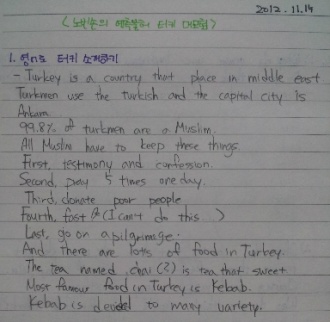 2012. 11. 14
터키 대모험>
1. 영어로 터키 소개하기
- Turkey is a country that place in middle east
Turkmen use the turkish and the capital city is
Ankara.
99.8% of turkmen are a Muslim.
All Muslim have to keep these things.
First, testimony and confession.
Second, pray 5 times one day.
Third, donate poor people
Fourth, fast (I can't do this...)
Last, go on a pilgrimage.
And there are lots of food in Turkey.
The tea named chai (?) is tea that sweet
Most famous food in Turkey is Kebab.
Kebab is divided to many variety.